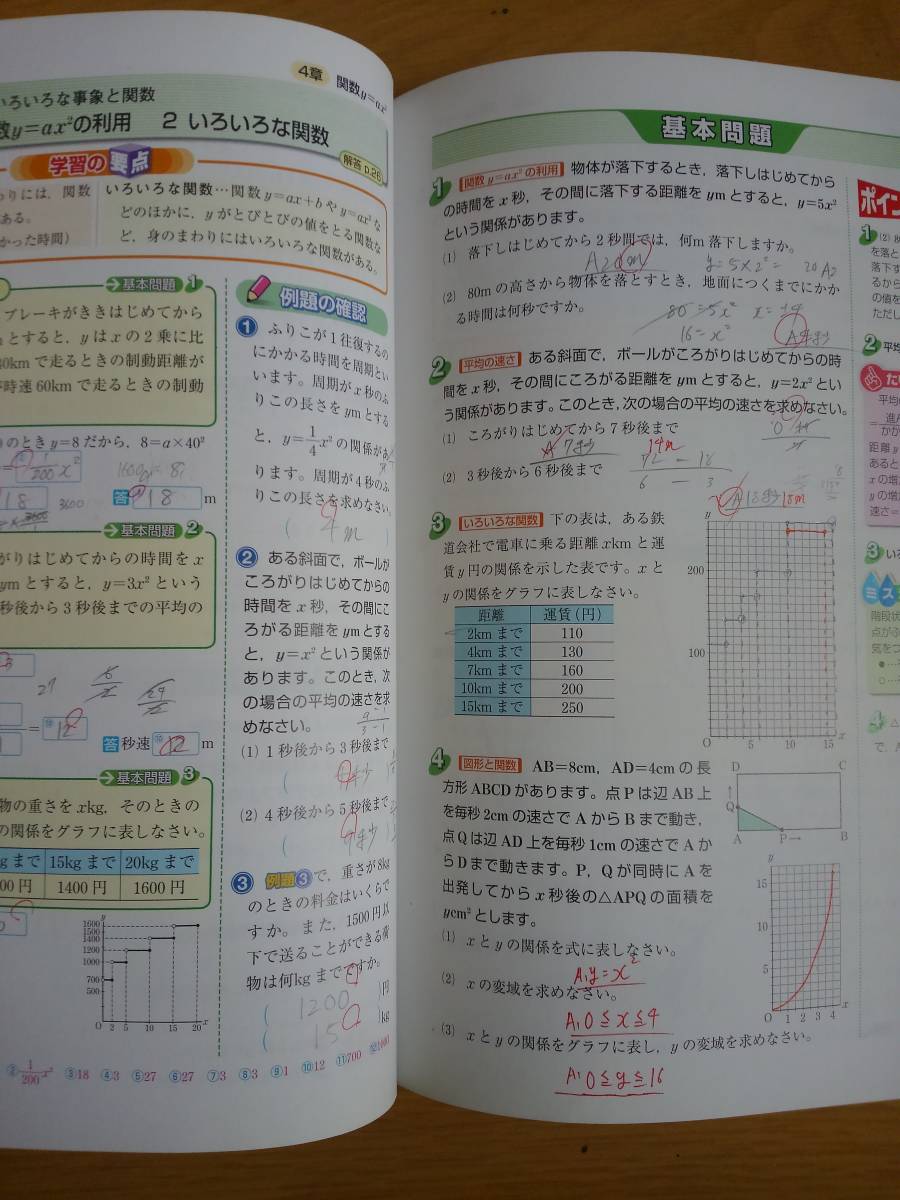 4章 関数y=ax²
いろいろな事象と関数
数y=ax²の利用 2 いろいろな関数
解答 p.26
学習の要点
わりには，関数
ある。
かった時間）
いろいろな関数…関数y=ax+bやy=ax²な
どのほかに，yがとびとびの値をとる関数な
ど，身のまわりにはいろいろな関数がある。
基本問題 1
ブレーキがききはじめてから
とすると，yはxの2乗に比
kmで走るときの制動距離が
時速60kmで走るときの制動
のときy=8だから，8=a×40²
1/200 x²
1600a=8
18
3600
答 18 m
基本問題 2
がりはじめてからの時間をx
ymとすると，y=3x²という
秒後から3秒後までの平均の
27
=12
答 秒速 12 m
基本問題 3
物の重さをxkg，そのときの
の関係をグラフに表しなさい。
kgまで 15kgまで 20kgまで
00円 1400円 1600円
y
1600
1500
1400
1200
1000
700
500
O 2 5 10 15 20 x
例題の確認
1 ふりこが1往復するの
にかかる時間を周期とい
います。周期がx秒のふ
りこの長さをymとする
と，y=1/4x²の関係があ
ります。周期が4秒のふ
りこの長さを求めなさい。
( 4m )
2 ある斜面で，ボールが
ころがりはじめてからの
時間をx秒，その間にこ
ろがる距離をymとする
と，y=x²という関係が
あります。このとき，次
の場合の平均の速さを求
めなさい。
9-1/3-1
(1) 1秒後から3秒後まで
(2) 4秒後から5秒後まで
3 例題3で，重さが8kg
のときの料金はいくらで
すか。また，1500円以
下で送ることができる荷
物は何kgまでですか。
1200 円
15 kg
②1/200x² ③18 ④3 ⑤27 ⑥27 ⑦3 ⑧3 ⑨1 ⑩12 ⑪700 ⑫1000
基本問題
1 関数y=ax²の利用 物体が落下するとき，落下しはじめてから
の時間をx秒，その間に落下する距離をymとすると，y=5x²
という関係があります。
(1) 落下しはじめてから2秒間では，何m落下しますか。
A 20m y=5×2²= 20
(2) 80mの高さから物体を落とすとき，地面につくまでにかか
る時間は何秒ですか。
80=5x² x=±4
16=x² A4秒
2 平均の速さ ある斜面で，ボールがころがりはじめてからの時
間をx秒，その間にころがる距離をymとすると，y=2x²とい
う関係があります。このとき，次の場合の平均の速さを求めなさい。
(1) ころがりはじめて7秒後まで
A 7秒 14m
(2) 3秒後から6秒後まで
72-18
6-3
A 18秒 18m
3 いろいろな関数 下の表は，ある鉄
道会社で電車に乗る距離xkmと運
賃y円の関係を示した表です。xと
yの関係をグラフに表しなさい。
距離 運賃（円）
2kmまで 110
4kmまで 130
7kmまで 160
10kmまで 200
15kmまで 250
y
200
100
O 5 10 15 x
4 図形と関数 AB=8cm，AD=4cmの長
方形ABCDがあります。点Pは辺AB上
を毎秒2cmの速さでAからBまで動き，
点Qは辺AD上を毎秒1cmの速さでAか
らDまで動きます。P，Qが同時にAを
出発してからx秒後の△APQの面積を
ycm²とします。
D C
Q
A P→ B
(1) xとyの関係を式に表しなさい。
A, y=x²
(2) xの変域を求めなさい。
A, 0≦x≦4
(3) xとyの関係をグラフに表し，yの変域を求めなさい。
A, 0≦y≦16
y
15
10
5
O 1 2 3 4 x
ポイン
1 (2)
を落と
落下す
るから
の値を
ただし
2 平均
平均の
進ん
かか
距離
あると
xの増
yの増
速さ=
3
ミス
階段状
点がふ
気をつ
4 △
で，